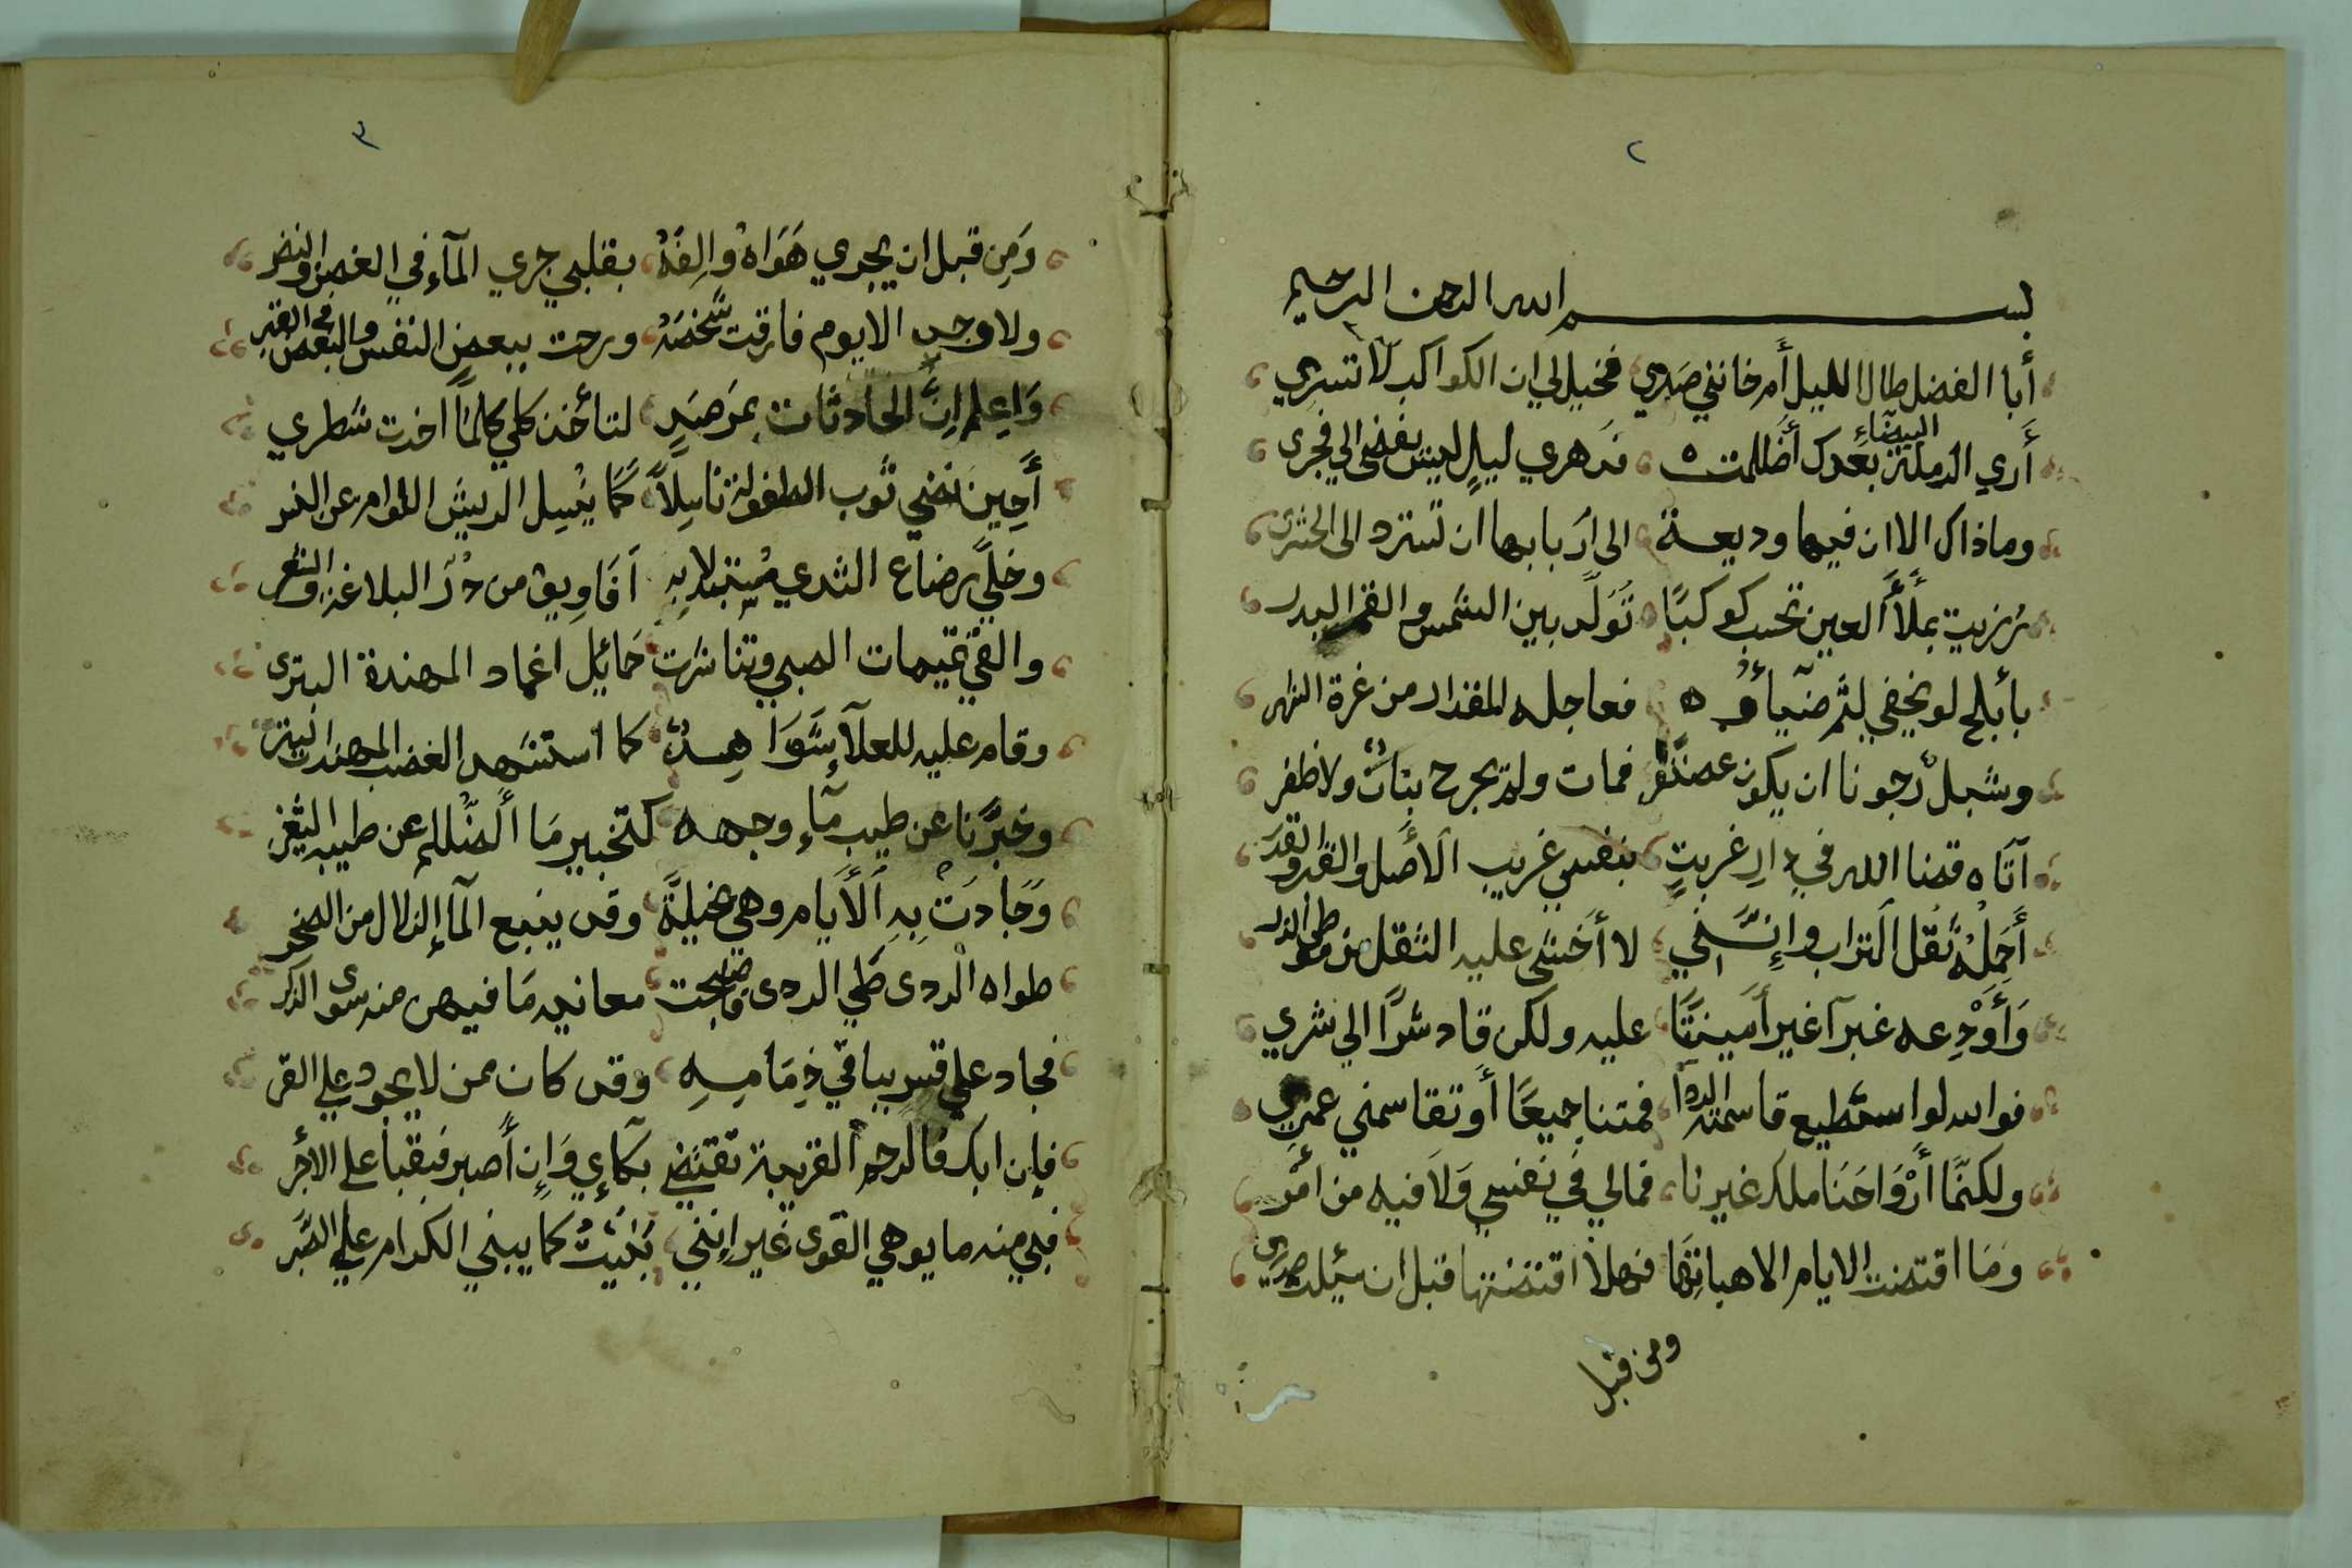 ٢
بســــم الله الرحمن الرحيم
أبا الفضل طال الليل أم خانني صبري فخيل لي ان الكواكب لا تسري
أري الرملة البيضاء بعدك أظلمت ه فدهري ليل ليس يفضى الي فجرى
وماذاك الا ان فيها وديعة الى أربابها ان تسترد الى الحشرى
رزيت بملأ العين تحسب كوكبًا تولد بين الشمس والقمر البدر
بأبلج لو يخفي لثم ضيآؤه ه فعاجله المقدار من غرة النهر
وشبل رجونا ان يكون غضنفر فمات ولم يجرح بناب ولا ظفر
آتاه قضا الله في دار غربةٍ بنفسي غريب الأصل والقدر والقدر
أحمله ثقل التراب وإنني لا أخشى عليه الثقل من موطى الذر
وَأودعه غبرآ غير أمينتًا عليه ولكن قاد شرًا الي شري
فوالله لو استطيع قاسمته الردا فمتنا جميعًا أو تقاسمني عمري
ولكنّما أرْوَاحَنَا ملك غيرنا فمالي في نفسي وَلَا فيه من امر
وَمَا اقتضت الايام الا هباتها فهلا اقتضتها قبل ان ميئلت صدري
ومن قبل
٣
وَمِن قبل ان يجري هَوَاهُ وإلفه بقلبي جري المآء في الغصن والنضر
ولا وجد الا يوم فارقت شخصَهُ ورحت ببعض النفس والبعض في القبر
وَاعلم انَّ الحادثات بمرصَدٍ لتأخذ كلي كلمآ اخدت شطري
أَحِينَ نضي ثوب الطفولة ناسِلاً كمَا ينسِل الريش اللوام عن النسر
وخلّي رضاع الثدي مستبدلا بهِ اَفَاوِيق من درَ البلاغة والشعر
والقي تميمات الصبي وتناثرت حَمائِل اغماد المهندة البترى
وقام عليه للعلآ شَوَاهِدٌ كما استشهد الغضب المهند البتر
وخبَّرنا عن طيب مآء وجهه كتخبير مَا ألضّللم عن طيبه الثغر
وَجَادَتْ بِهِ اَلأَيام وهي بخيلةً وقد ينبع المآإ الزلال من الصخر
طواه الردى طَي الردى فاصبحت معانيه مَا فيهن منه سوى الذكر
فجاد علي قبر بباقي ذِمَامِهِ وقد كان ممن لا يجود علي القر
فإن ابك فالرحم القريبة تقتضي بكآءِي وَإن أصبر فبقيا على الأجر
فبي منه ما يوهي القوى غير انني بَنيتُ كما يبني الكرام علي الصَّبر